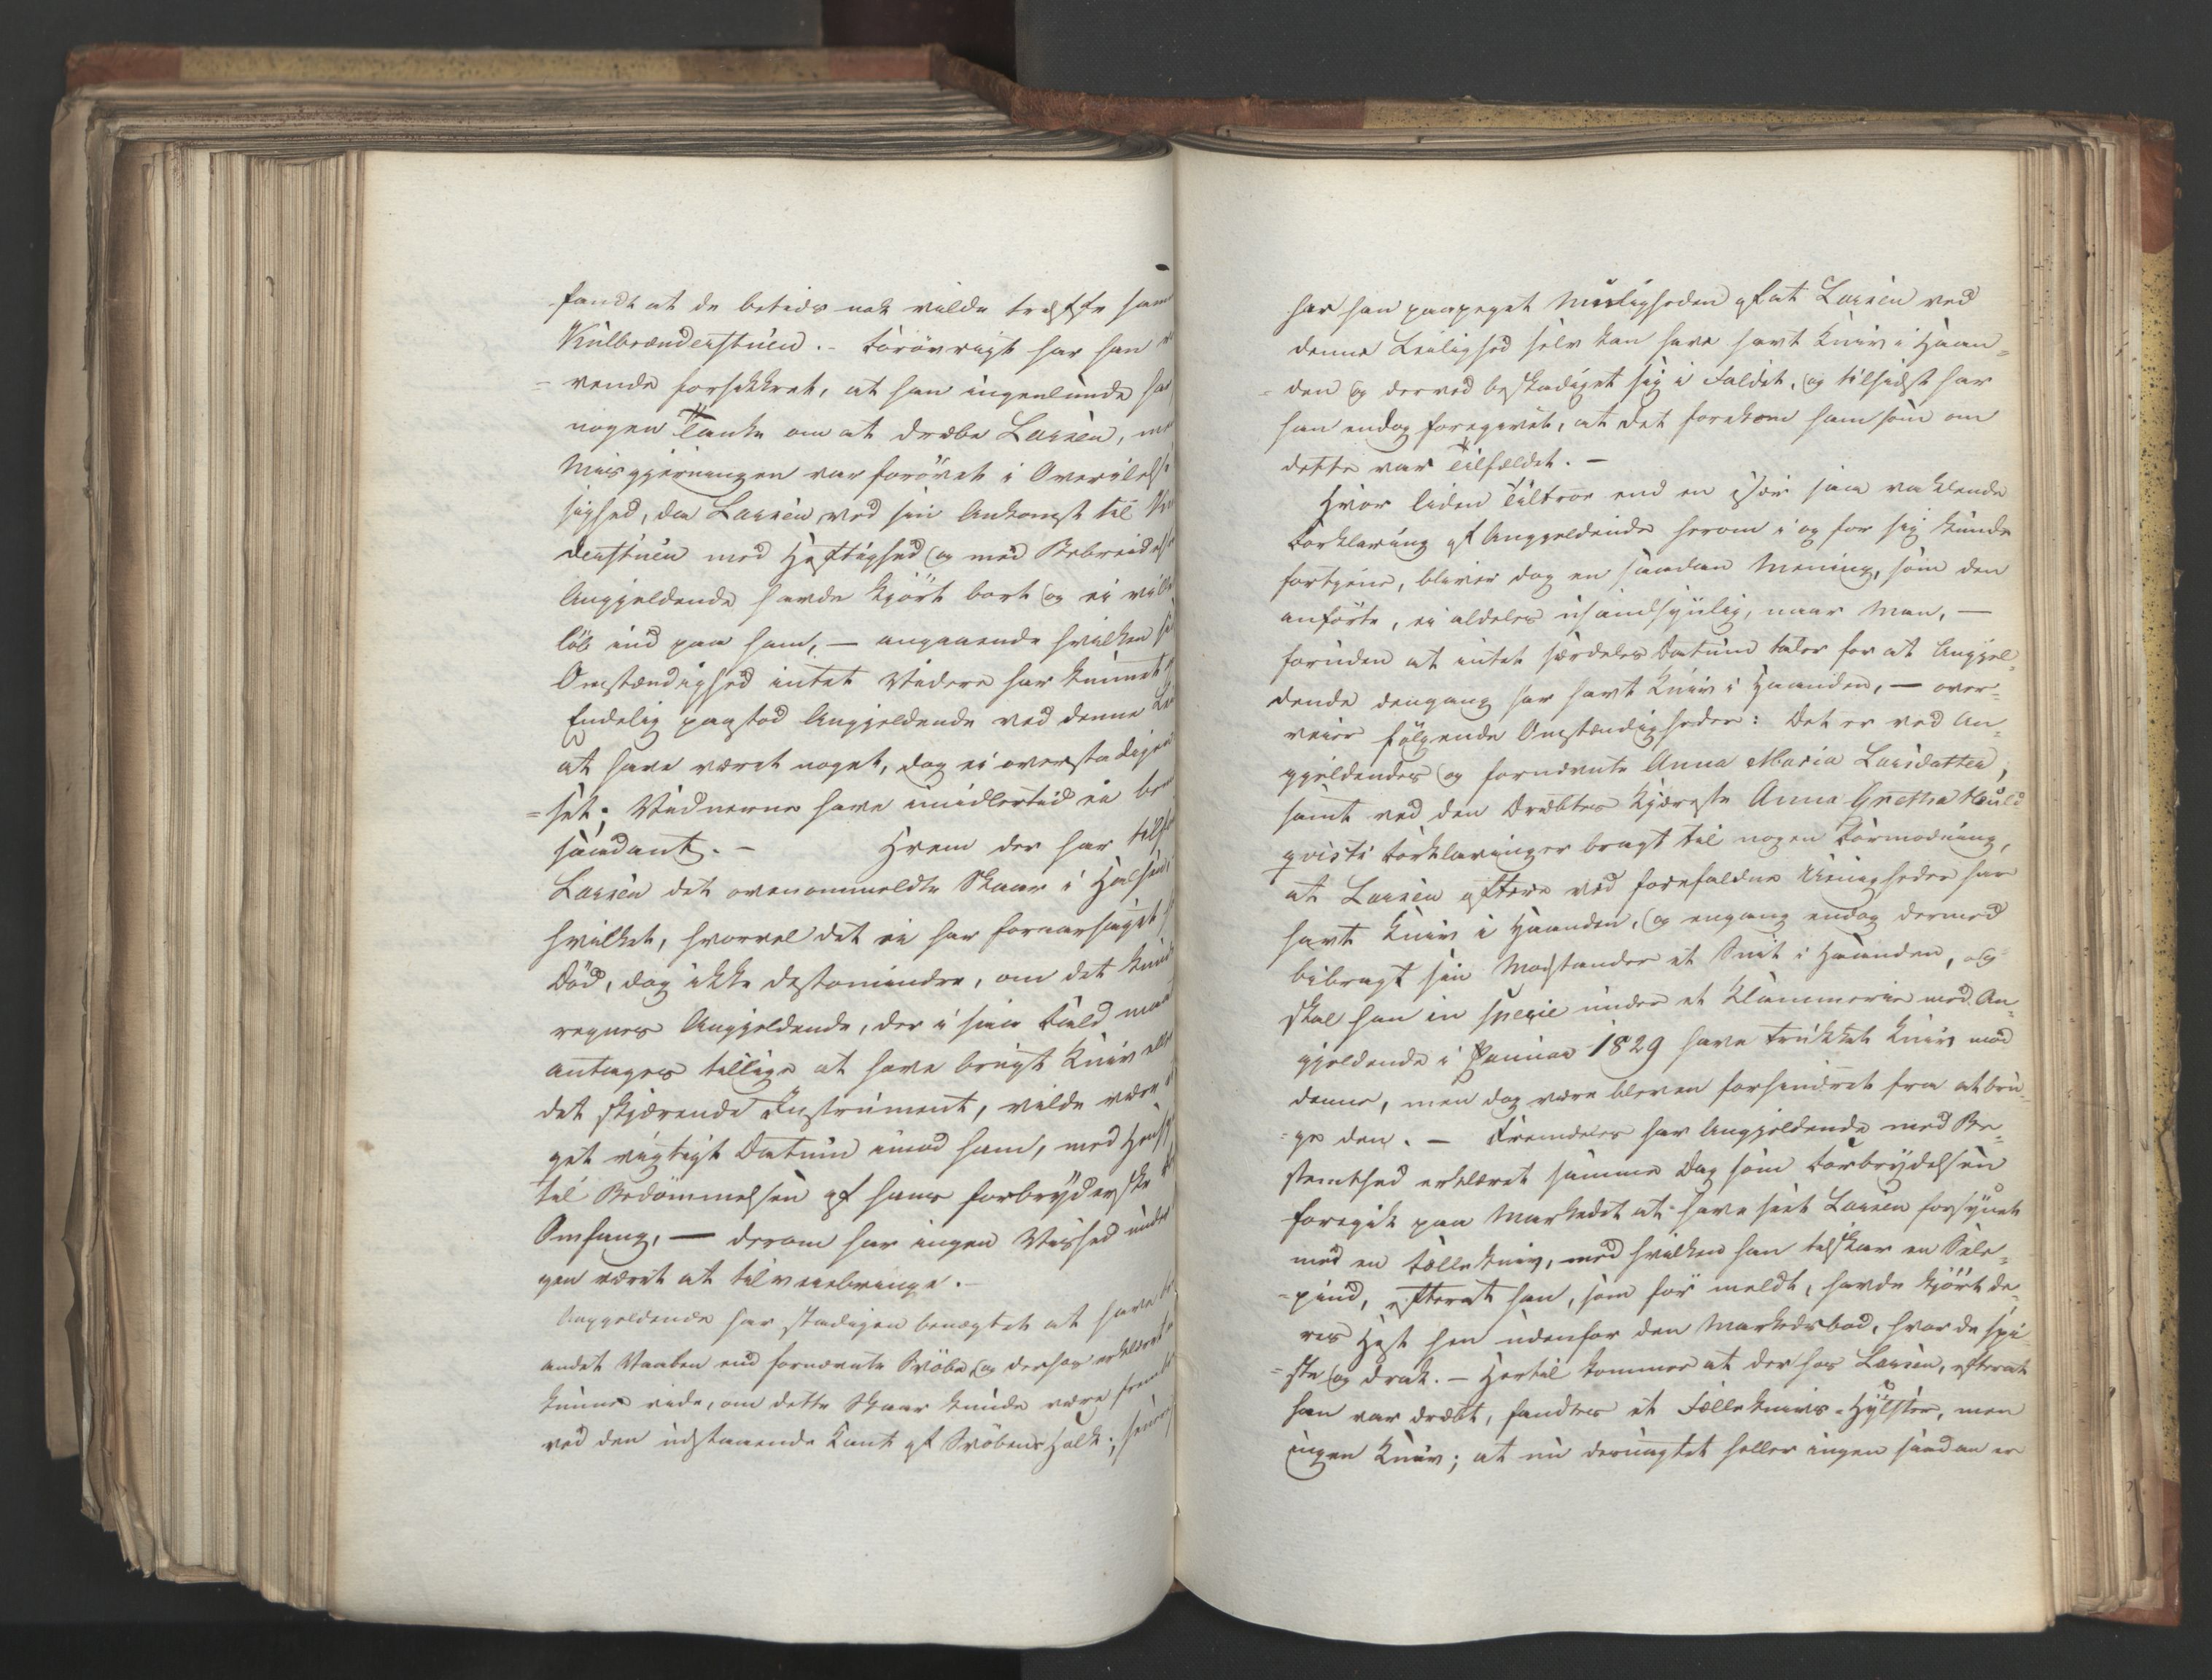 fandt at de betids nok vilde træffe sam
Kulbrænderstuen. - Forövrigt har han
= rende forsikkret, at han ingenlunde ha
nogen Tanke om at dræbe Larsen, m
Misgjerningen var forövet i Overilels
sighed, da Larsen ved sin Ankomst til
derstuen med Heftighed og med Bebreidels
Angjeldende havde kjört bort og ei vil
löb ind paa ham, — angaaende hvilken
Omstændighed intet Videre har kunnet
Endelig paastod Angjeldende ved denne
at have været noget, dog ei overstadigen
= set; Vidnerne have imidlertid ei be
saadant. - Hvem der har tilf
Larsen det ovenommeldte Skaar i Halsen,
hvilket, hvorvel det ei har foraarsaget
Död, dog ikke destomindre, om det kund
regnes Angjeldende, der i saa Fald maa
antages tillige at have brugt Kniv ell
det skjærende Instrument, vilde være
get vigtigt Datum imod ham, med Hensy
til Bedömmelsen af hans forbryderske
Omfang, — derom har ingen Vished und
gen været at tilveiebringe. -
Angjeldende har stadigen benægtet at have
andet Vaaben end fornævnte Svöbe, og derhos erklæret
kunne vide, om dette Skaar kunde være frem
ved den udstaaende Kant af Svöbens Holk; sener
har han paapeget Muligheden af at Larsen ved
denne Leilighed selv kan have havt Kniv i Haan=
= den og derved beskadiget sig i Faldet, og tilsidst har
han endog foregivet, at det forekom ham som om
dette var Tilfældet. —
Hvor liden Tiltroe end en især saa vaklende
Forklaring af Angjeldende herom i og for sig kunde
fortjene, bliver dog en saadan Mening, som den
anförte, ei aldeles usandsynlig, naar Man, —
foruden at intet særdeles Datum taler for at Angjel=
dende dengang har havt Kniv i Haanden, — over=
veier fölgende Omstændigheder: Det er ved An=
gjeldendes og fornævnte Anna Maria Larsdatter,
samt ved den Dræbtes Kjæreste Anna Gretha
qvists Forklaringer bragt til nogen Formodning,
at Larsen oftere ved forefaldne Uenigheder har
havt Kniv i Haanden, og engang endog dermed
bibragt sin Modstander et Snit i Haanden, og
skal han in specie under et Klammerie med An=
gjeldende i Januar 1829 have trukket Kniv mod
denne, men dog være bleven forhindret fra at bru=
= ge den. — Fremdeles har Angjeldende med Be=
stemthed erklæret samme Dag som Forbrydelsen
foregik paa Markedet at have seet Larsen forsynet
med en Follekniv, med hvilken han tilskar en Sele=
= pind, efterat han, som för meldt, havde kjört de=
res Hest hen udenfor den Markedsbod, hvor de spi
= ste og drak. — Hertil kommer at der hos Larsen, efterat
han var dræbt, fandtes et Follekniivs=Hylster, men
ingen Kniv; at nu deruagtet heller ingen saadan er